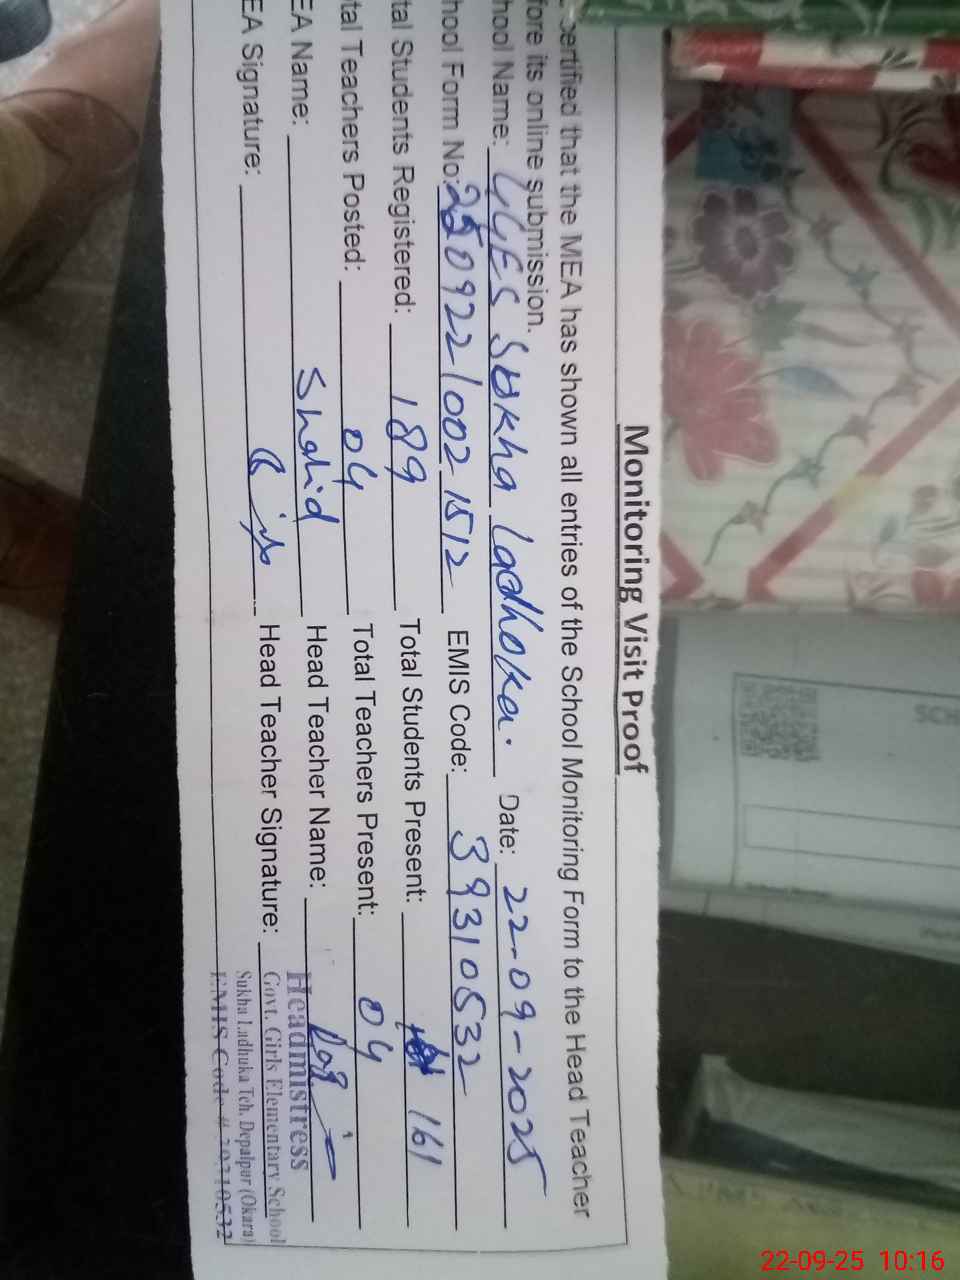 Monitoring Visit Proof
certified that the MEA has shown all entries of the School Monitoring Form to the Head Teacher
fore its online submission.
hool Name: GGES Sukha Ladhoka. Date: 22-09-2025
hool Form No: 25092210021512 EMIS Code: 39310532
tal Students Registered: 189 Total Students Present: 161
tal Teachers Posted: 04 Total Teachers Present: 04
EA Name: Shahid Head Teacher Name:
EA Signature: Head Teacher Signature:
Headmistress
Govt. Girls Elementary School
Sukha Ladhuka Teh. Depalpur (Okara)
EMIS Code # 39310532
SCH
22-09-25 10:16